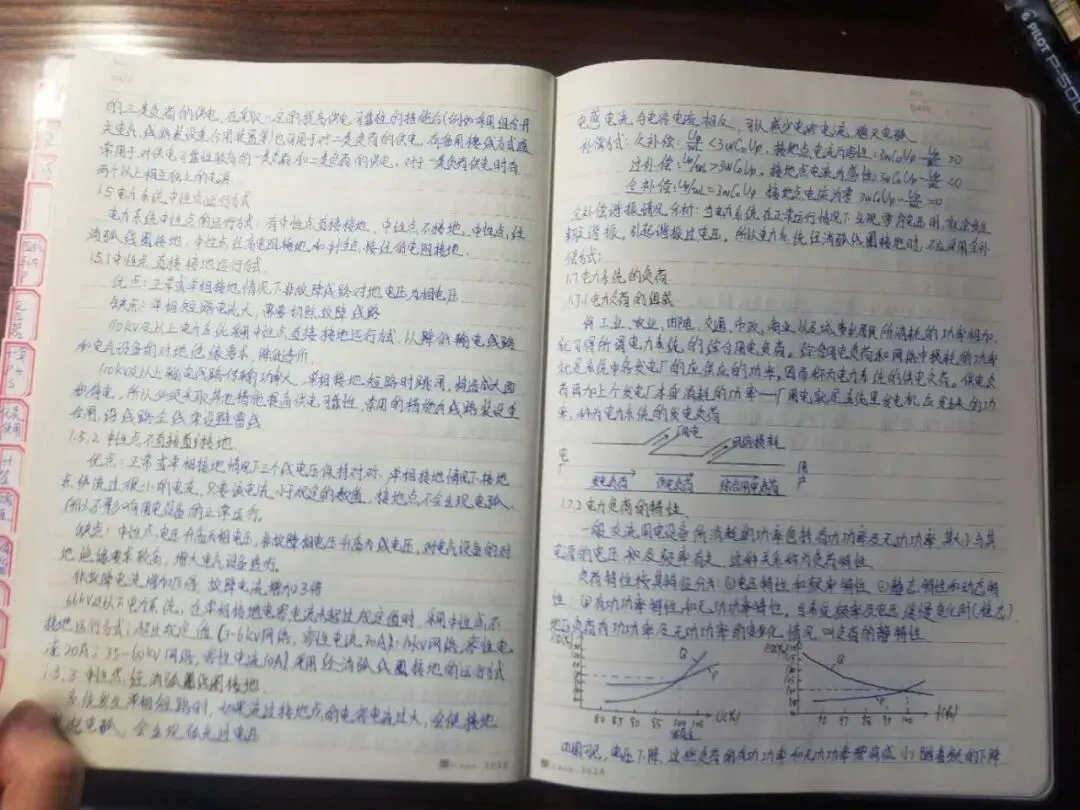 的三类负荷的供电,在采取一定的提高供电可靠性的措施后(例如采用组合开
关电器,线路装设重合闸装置等)也可用于对二类负荷的供电,有备用接线方式通
常用于对供电可靠性较高的一类负荷和二类负荷的供电,对于一类负荷供电时有
两个以上相互独立的电源。
1.5电力系统中性点运行方式
电力系统中性点的运行方式:有中性点直接接地,中性点不接地,中性点经
消弧线圈接地,中性点经电阻接地
1.5.1中性点直接接地运行方式。
优点:正常或单相接地情况下非故障线路对地电压为相电压
缺点:单相短路电流大,需要切除故障线路
110kV及以上电力系统采用中性点直接接地运行方式,以降低输电线路
和电气设备的对地绝缘要求,降低造价。
110kV及以上输电线路传输功率大,单相接地短路时跳闸,将造成大面
积停电,所以必须采取其他措施提高供电可靠性,常用的措施有线路装设重
合闸,沿线路全线架设避雷线
1.5.2中性点不直接接地
优点:正常或单相接地情况下三个线电压保持对称,单相接地情况下接地
点仅流过很小的电流,只要该电流小于规定的数值,接地点不会出现电弧,
所以不影响用电设备的正常运行。
缺点:中性点电压升高为相电压,非故障相电压升高为线电压,对电气设备的对
地绝缘要求较高,增大电气设备费用。
非故障电流增加√3倍,故障电流增加3倍
66kV及以下电力系统,在单相接地电容电流未超过规定值时,采用中性点不
接地运行方式;超出规定值(3-6kV网络,容性电流30A;10kV网络,容性电
流20A;35-60kV网络,容性电流10A)采用经消弧线圈接地的运行方式
1.5.3中性点经消弧线圈接地
系统发生单相短路时,如果流过接地点的电容电流过大,会使接地
起电弧,会出现弧光过电压
电感电流与电容电流相反,可以减少电容电流,熄灭电弧
补偿方式:欠补偿:Up/ωL<3ωC0Up,接地点电流为容性:3ωC0Up-Up/ωL>0
过补偿:Up/ωL>3ωC0Up,接地点电流为感性:3ωC0Up-Up/ωL<0
全补偿:Up/ωL=3ωC0Up 接地点电流为零 3ωC0Up-Up/ωL=0
全补偿谐振情况分析:当电力系统在正常运行情况下出现零序电压时,就会发生
串联谐振,引起谐振过电压。所以电力系统经消弧线圈接地时,不应采用全补
偿方式;
1.7电力系统的负荷
1.7.1电力负荷的组成
将工业、农业、邮电、交通、市政、商业以及城乡居民所消耗的功率相加,
就可得所谓电力系统的综合用电负荷。综合用电负荷和网络中损耗的功率
就是系统中各发电厂的应供应的功率,因而称为电力系统的供电负荷。供电负
荷再加上个发电厂本身消耗的功率——厂用电,就是系统里发电机应发出的功
率,称为电力系统的发电负荷
厂用电
网络损耗
电
厂
用
户
发电负荷
供电负荷
综合用电负荷
1.7.2电力负荷的特性
一般交流用电设备所消耗的功率包括有功功率及无功功率,其大小与其
电源的电压和及频率有关,这种关系称为负荷特性
负荷特性按其特征分为:①电压特性和频率特性 ②静态特性和动态特
性;③有功功率特性和无功功率特性,当系统频率及电压缓慢变化时(稳态)
地区负荷有功功率及无功功率的变化情况叫负荷的静特性
P.Q(%)
Q
P
80 85 90 95 100 105 U(%)
P.Q(%)
Q
P
f(%)
由图可见,电压下降,这些负荷的有功功率和无功功率